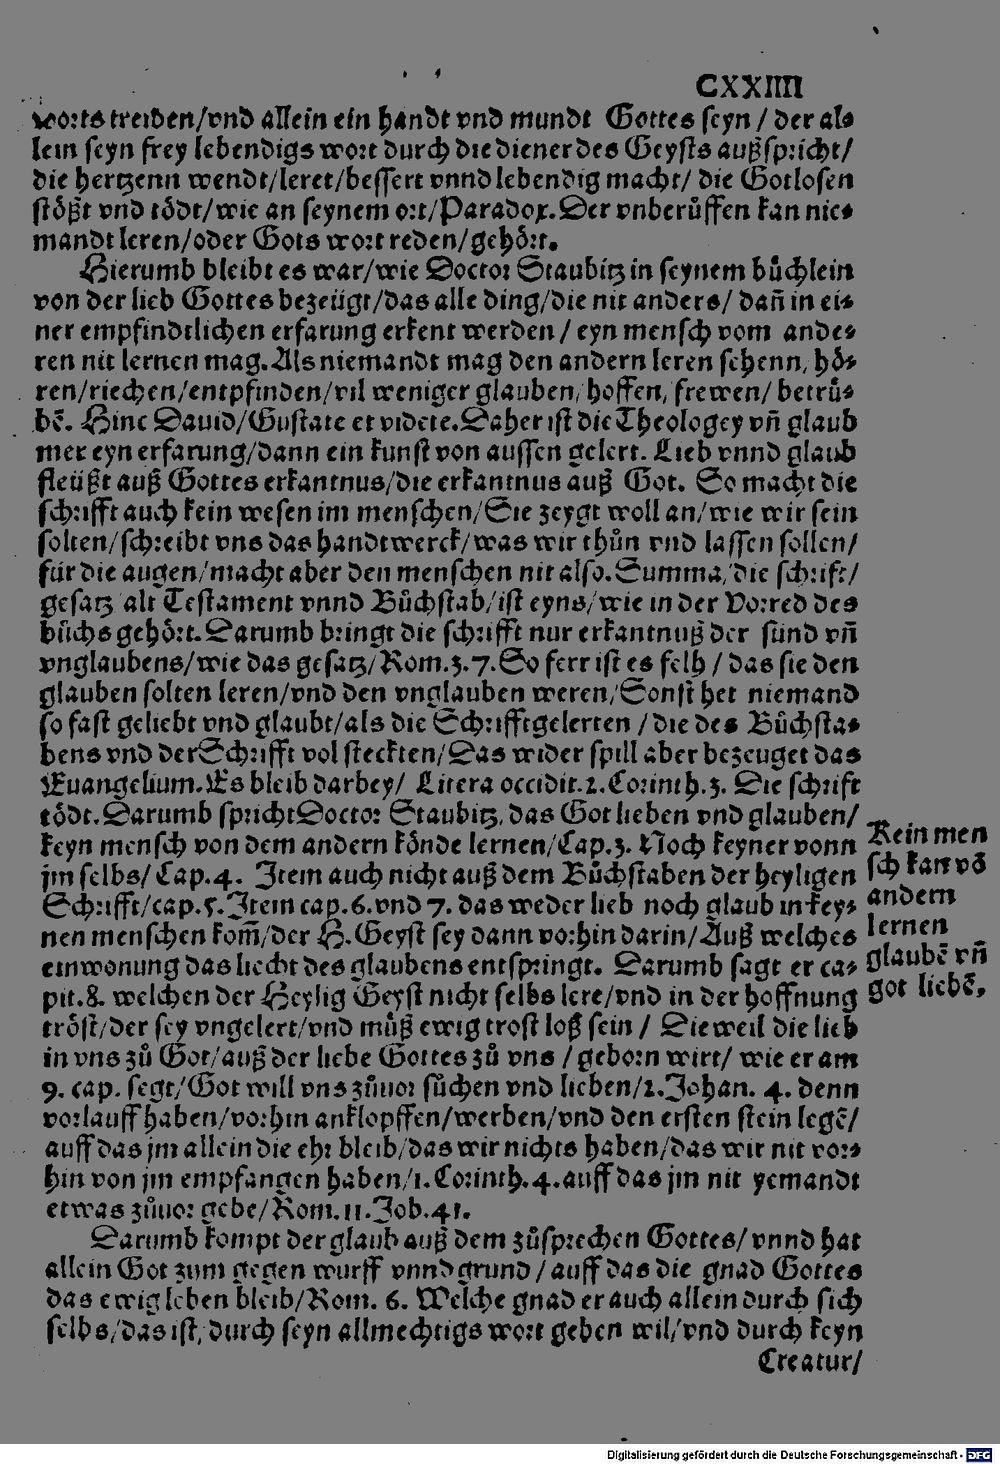 CXXIIII
worts treiben/vnd allein ein handt vnd mundt Gottes seyn / der al⸗
lein seyn frey lebendigs wort durch die diener des Geysts außspricht/
die hertzenn wendt/leret/bessert vnnd lebendig macht/ die Gotlosen
stößt vnd tödt/wie an seynem ort/Paradox. Der vnberůffen kan nie⸗
mandt leren/oder Gots wort reden/gehört.
Hierumb bleibt es war/wie Doctor Staubitz in seynem bůchlein
von der lieb Gottes bezeügt/das alle ding/die nit anders/ dañ in ei⸗
ner empfindtlichen erfarung erkent werden / eyn mensch vom ande⸗
ren nit lernen mag. Als niemandt mag den andern leren sehenn, hö⸗
ren/riechen/entpfinden/vil weniger glauben/hoffen, frewen/ betrů⸗
bē. Hinc Dauid/Gustate et videte. Daher ist die Theologey vñ glaub
mer eyn erfarung/dann ein kunst von aussen gelert. Lieb vnnd glaub
fleüßt auß Gottes erkantnus/die erkantnus auß Got. So macht die
schrifft auch kein wesen im menschen/Sie zeygt woll an/wie wir sein
solten/schreibt vns das handtwerck/was wir thůn vnd lassen sollen/
für die augen/macht aber den menschen nit also. Summa/die schrift/
gesatz alt Testament vnnd Bůchstab/ist eyns/wie in der Vorred des
bůchs gehört. Darumb bringt die schrifft nur erkantnuß der sünd vñ
vnglaubens/wie das gesatz/Rom.3.7. So ferr ist es felh / das sie den
glauben solten leren/vnd den vnglauben weren/Sonst het niemand
so fast geliebt vnd glaubt/als die Schrifftgelerten / die des Bůchsta⸗
bens vnd der Schrifft vol steckten/Das wider spill aber bezeuget das
Euangelium. Es bleib darbey/ Litera occidit.2.Corinth.3. Die schrift
tödt. Darumb spricht Doctor Staubitz, das Got lieben vnd glauben/
keyn mensch von dem andern könde lernen/Cap.3. Noch keyner vonn
jm selbs/ Cap.4. Item auch nicht auß dem Bůchstaben der heyligen
Schrifft/cap.5. Item cap.6.vnd 7. das weder lieb noch glaub in key⸗
nen menschen kom̃/der H. Geyst sey dann vorhin darin/Auß welches
einwonung das liecht des glaubens entspringt. Darumb sagt er ca⸗
pit.8. welchen der Heylig Geyst nicht selbs lere/vnd in der hoffnung
tröst/der sey vngelert/vnd můß ewig trost loß sein / Die weil die lieb
in vns zů Got/auß der liebe Gottes zů vns / geborn wirt/ wie er am
9. cap. segt/Got will vns zůuor sůchen vnd lieben/1.Johan. 4. denn
vorlauff haben/vorhin anklopffen/werben/vnd den ersten stein legē/
auff das jm allein die ehr bleib/das wir nichts haben/das wir nit vor⸗
hin von jm empfangen haben/1.Corinth.4.auff das jm nit yemandt
etwas zůuor gebe/Rom.11.Job.41.
Darumb kompt der glaub auß dem zůsprechen Gottes/ vnnd hat
allein Got zum gegen wurff vnnd grund / auff das die gnad Gottes
das ewig leben bleib/Rom. 6. Welche gnad er auch allein durch sich
selbs/das ist, durch seyn allmechtigs wort geben wil/vnd durch keyn
Creatur/
Kein men
sch kan võ
andern
lernen
glaubē vñ
got liebē.
Digitalisierung gefördert durch die Deutsche Forschungsgemeinschaft - DFG